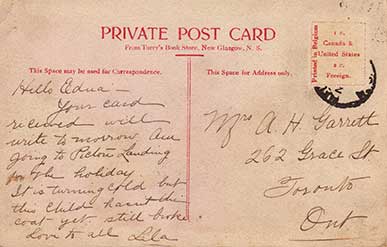 PRIVATE POST CARD
From Torry's Book Store, New Glasgow, N. S.
This Space may be used for Correspondence.
This Space for Address only.
Printed in Belgium
1 c.
Canada &
United States
2 c.
Foreign.
Hello Edna —
Your card
received will
write to morrow. Am
going to Pictou Landing
for the holiday.
It is turning cold but
this child hasnt the
coat yet. still broke
Love to all Lila
Mrs A. H. Garrett
262 Grace St
Toronto
Ont